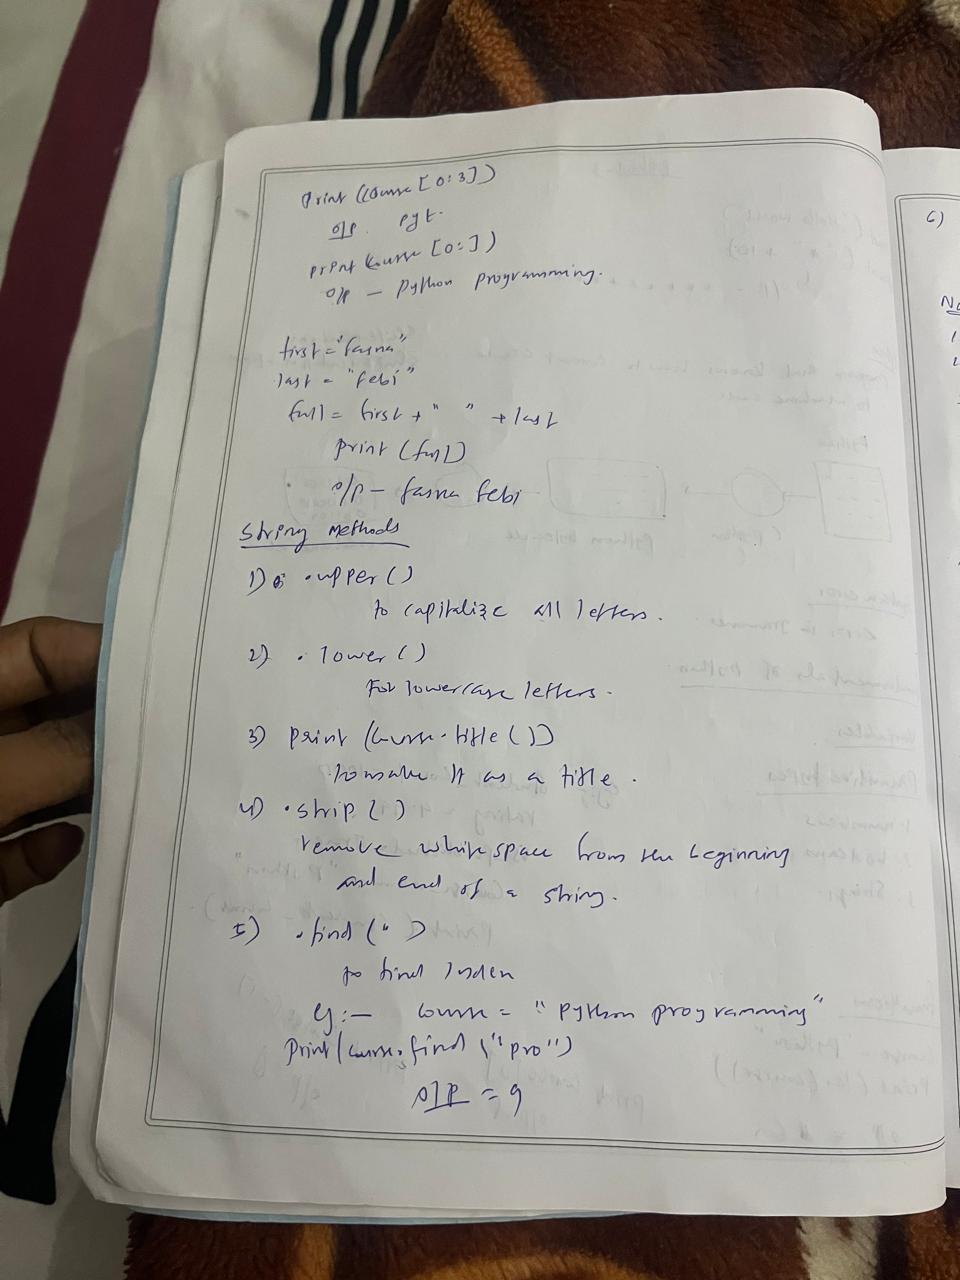 print (course [0:3])
o/p. pyt.
print (course [0:])
o/p – python programming.
first = "fasna"
last = "febi"
full = first + " " + last
print (full)
o/p – fasna febi
String Methods
1) .upper ()
to capitalize all letters.
2) . lower ()
For lowercase letters.
3) print (course.title ())
to make it as a title.
4) .strip ()
remove white space from the beginning
and end of a string.
5) .find (" )
to find Index
eg:– course = "python programming"
print (course.find ("pro")
o/p = 9
6)